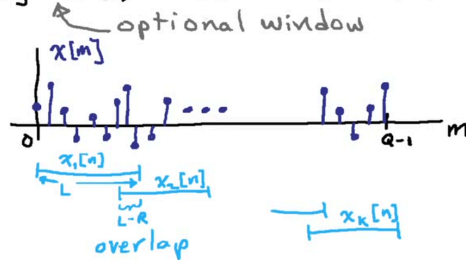 optional window
x[m]
0
Q-1
m
x₁[n]
L
x₂[n]
L-R
overlap
xₖ[n]